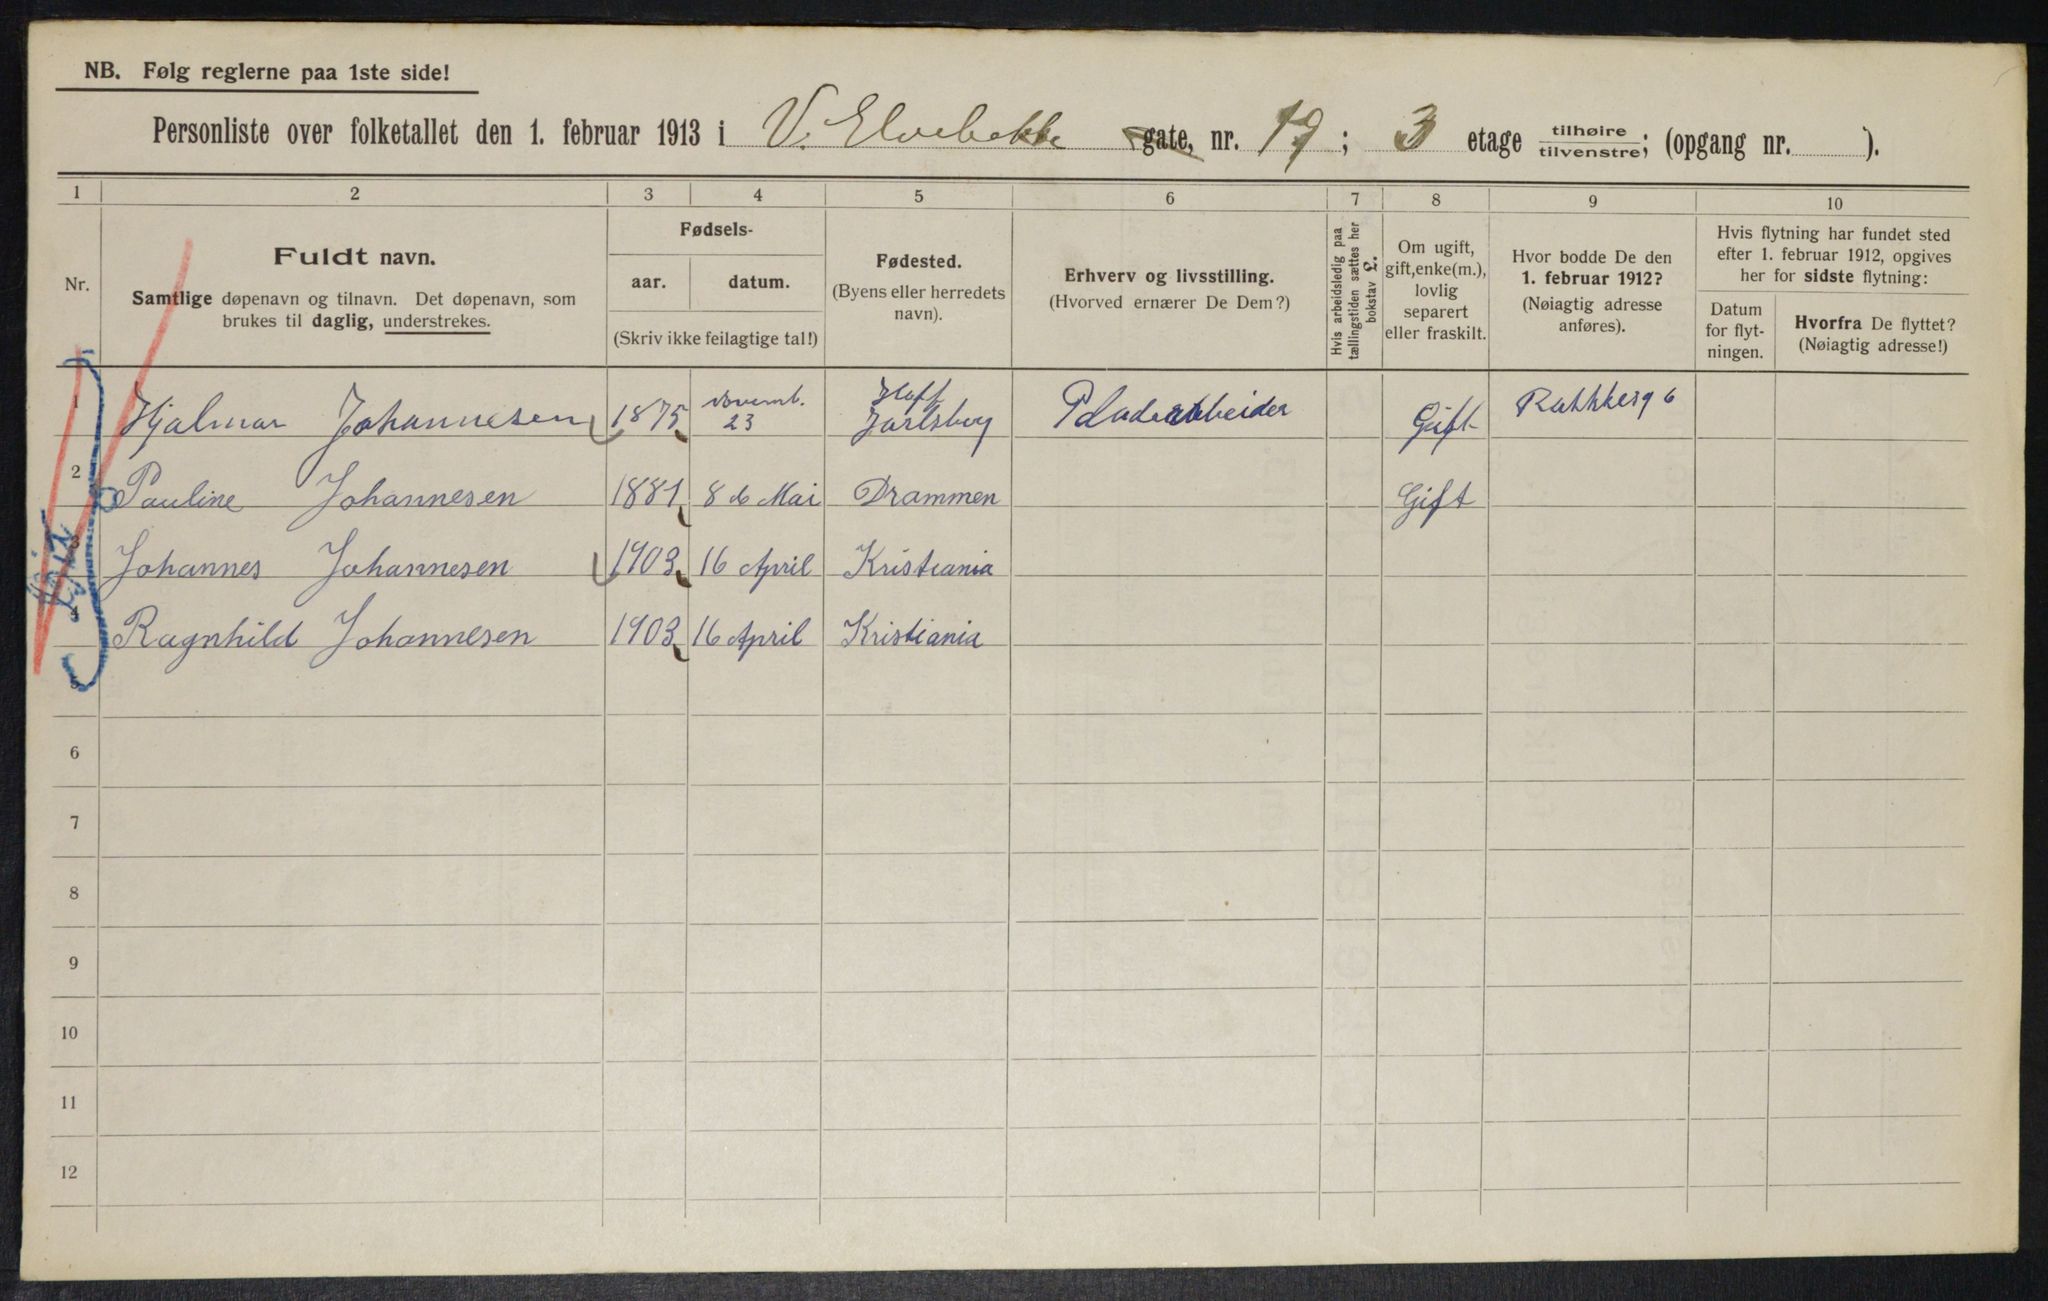 NB. Følg reglerne paa 1ste side!
Personliste over folketallet den 1. februar 1913 i V. Elvebakke gate, nr. 19; 3 etage tilhøire/tilvenstre; (opgang nr. ).
1 2 3 4 5 6 7 8 9 10
Nr.
Fuldt navn.
Samtlige døpenavn og tilnavn. Det døpenavn, som
brukes til daglig, understrekes.
Fødsels-
aar. datum.
(Skriv ikke feilagtige tal!)
Fødested.
(Byens eller herredets
navn).
Erhverv og livsstilling.
(Hvorved ernærer De Dem?)
Hvis arbeidsledig paa
tællingstiden sættes her
bokstav £.
Om ugift,
gift, enke(m.),
lovlig
separert
eller fraskilt.
Hvor bodde De den
1. februar 1912?
(Nøiagtig adresse
anføres).
Hvis flytning har fundet sted
efter 1. februar 1912, opgives
her for sidste flytning:
Datum
for flyt-
ningen.
Hvorfra De flyttet?
(Nøiagtig adresse!)
1 Hjalmar Johannesen 1875 Novemb. 23 Hoff Jarlsberg Pladearbeider Gift 6
2 Pauline Johannesen 1881 8 de Mai Drammen Gift
3 Johannes Johannesen 1903 16 April Kristiania
4 Ragnhild Johannesen 1903 16 April Kristiania
5
6
7
8
9
10
11
12